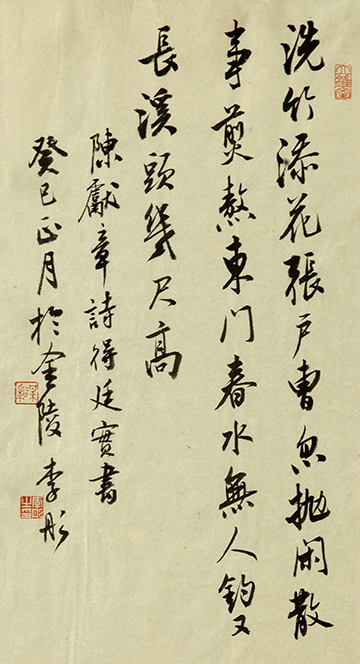 洗竹添花張戶曹忽拋閑散
事煎熬東門春水無人釣又
長溪頭幾尺高
陳獻章詩得廷實書
癸巳正月於金陵李彤